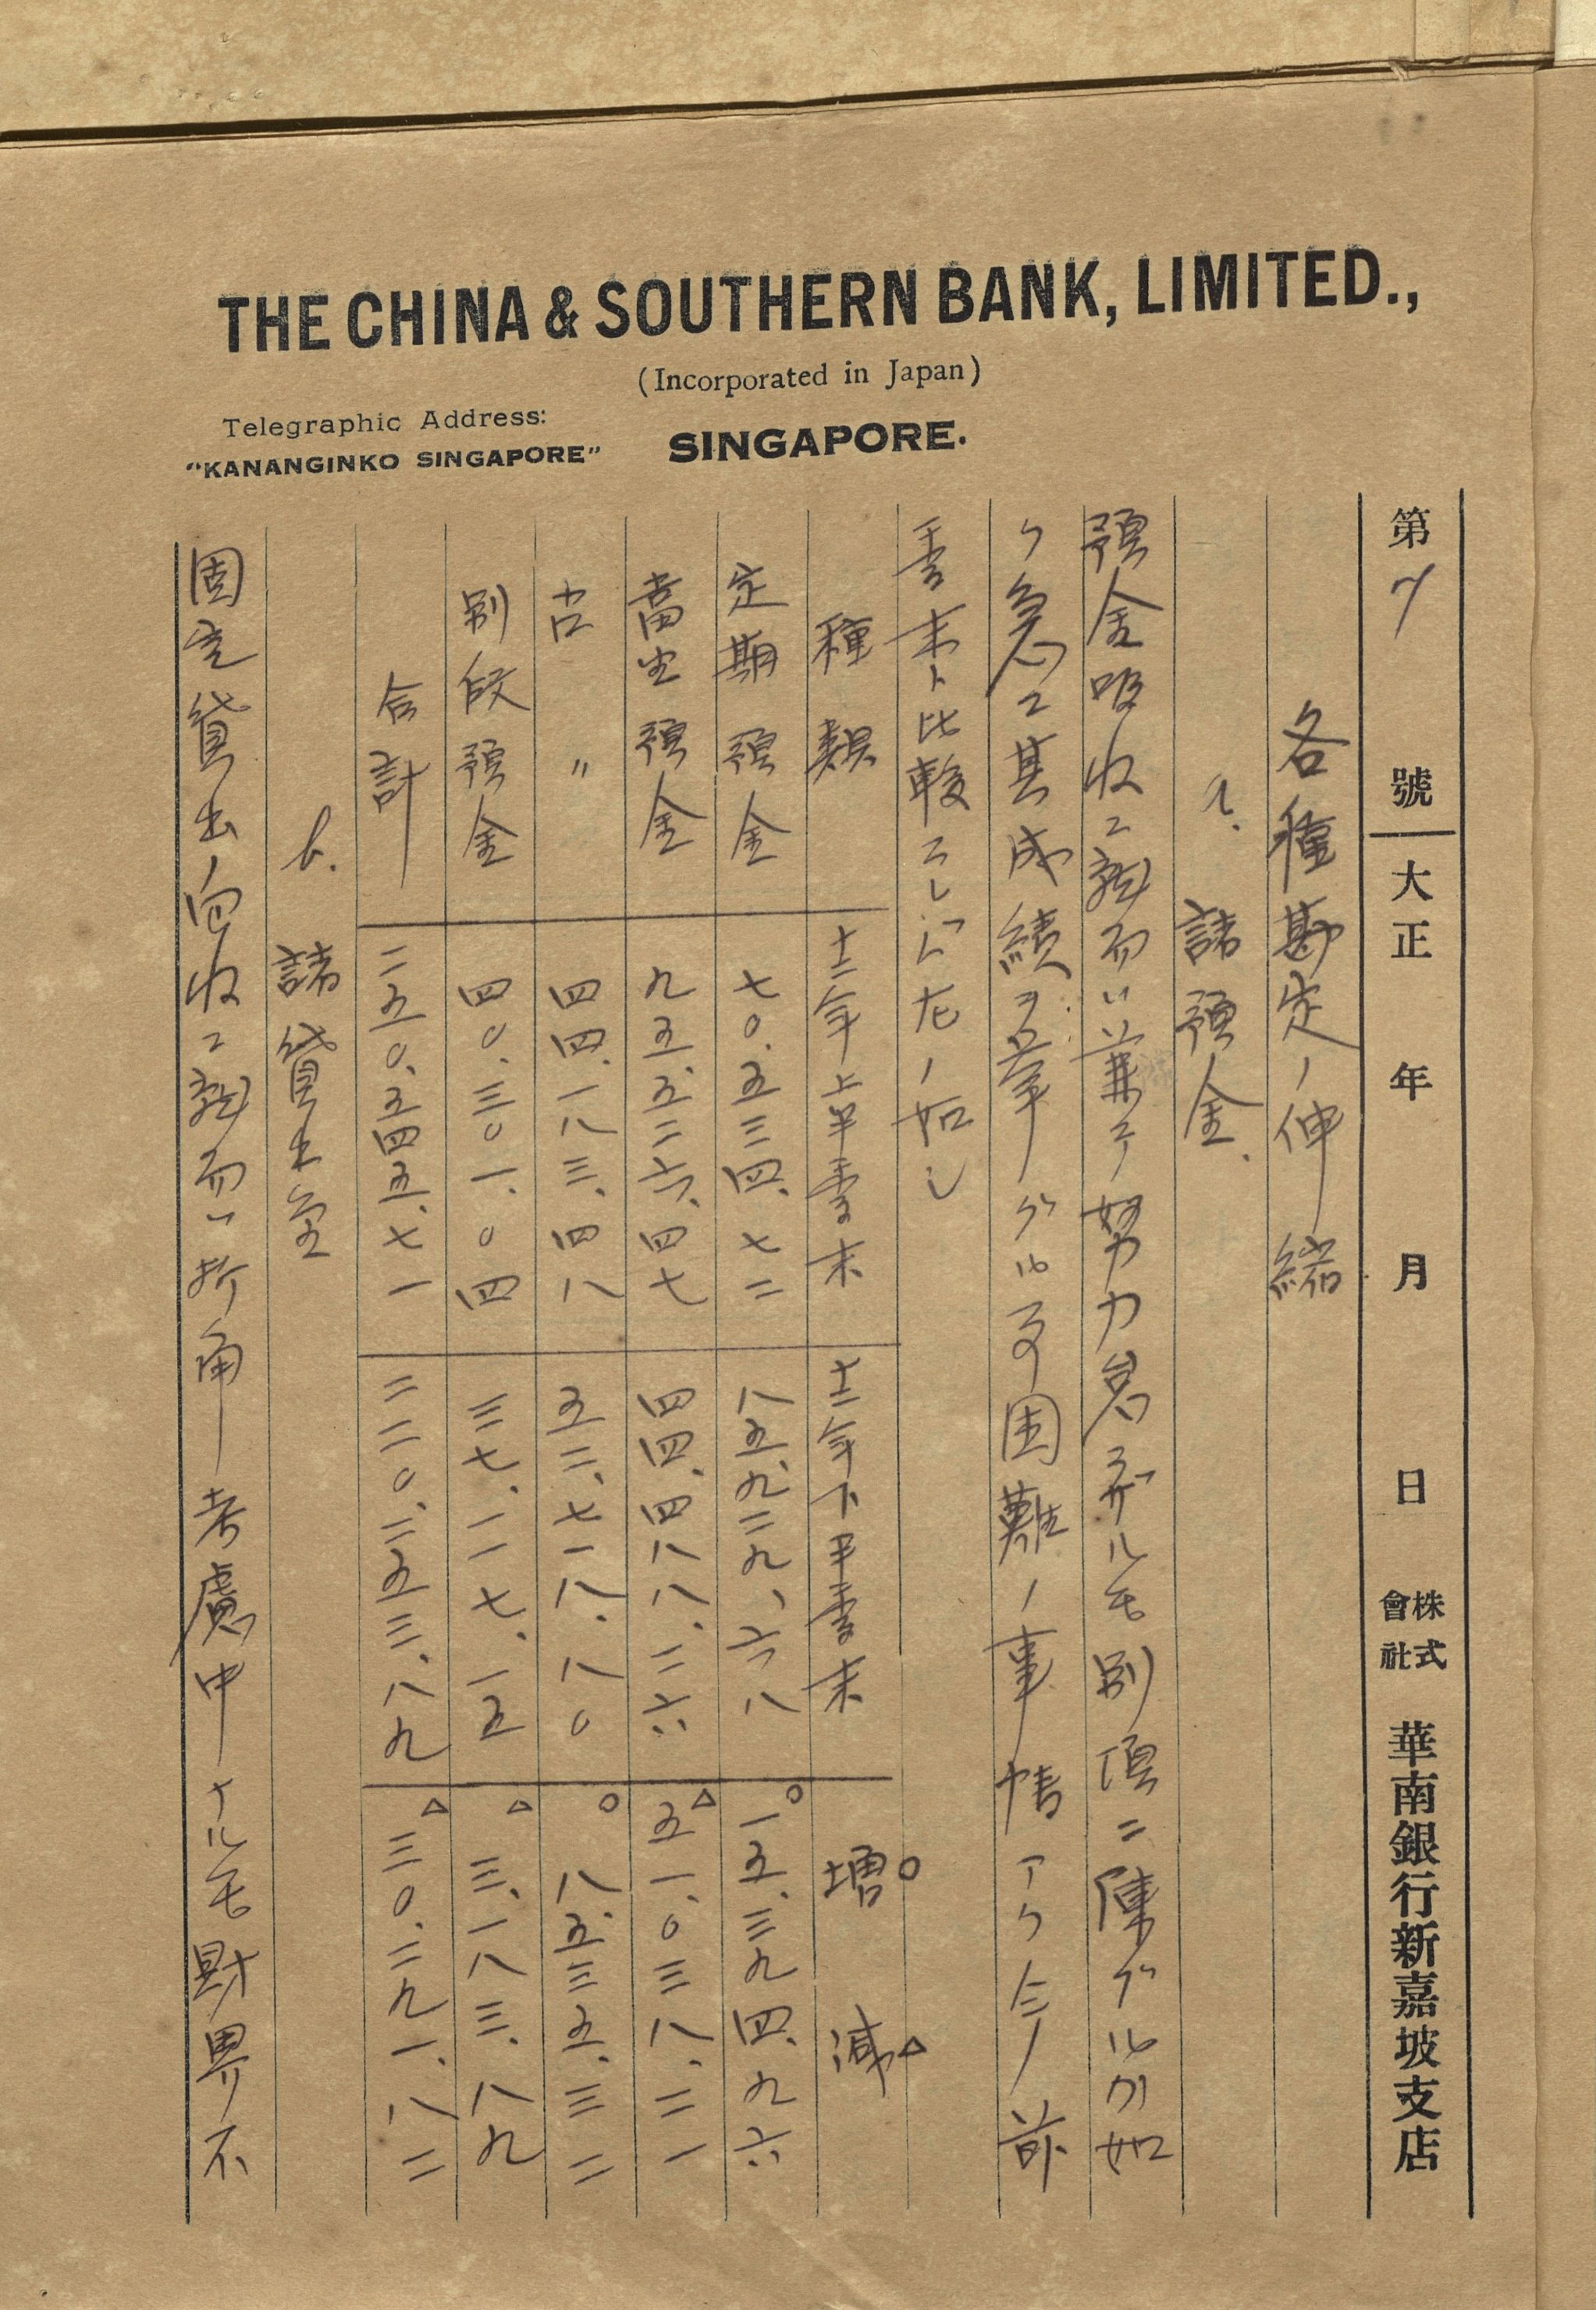 THE CHINA & SOUTHERN BANK, LIMITED.,
(Incorporated in Japan)
Telegraphic Address:
"KANANGINKO SINGAPORE"
SINGAPORE.
第 號 大正 年 月 日 株式會社 華南銀行新嘉坡支店
各種勘定ノ伸縮
a. 諸預金.
預金吸収ニ就而ハ兼テ努力怠ラザルモ別項ニ陳ブルカ如
ク急ニ其成績ヲ挙グル事困難ノ事情アリ今前
季末ト比較スレバ左ノ如シ
種類 十二年上半季末 十二年下半季末 増○ 減△
定期預金 七〇.五三四.七二 八五.九二九.六八 ○一五.三九四.九六
當座預金 九五.五二六.四七 四四.四八八.二六 △五一.〇三八.二一
古〃 四四.一八三.四八 五二.七一八.八〇 ○八.五三五.三二
別段預金 四〇.三〇一.〇四 三七.一一七.一五 △三.一八三.八九
合計 二五〇.五四五.七一 二二〇.二五三.八九 △三〇.二九一.八二
b. 諸貸出金
固定貸出ノ回収ニ就而ハ折角考慮中ナルモ財界不